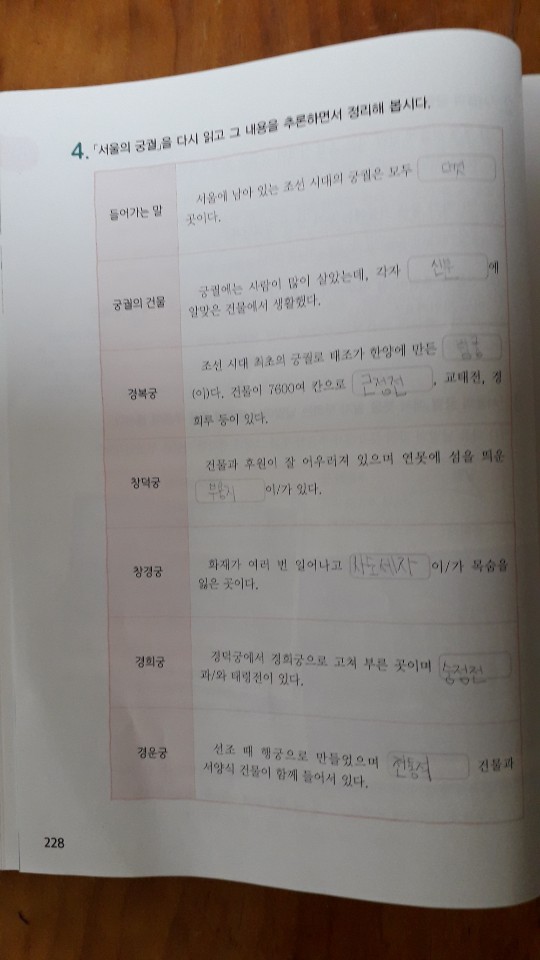 4. 「서울의 궁궐」을 다시 읽고 그 내용을 추론하면서 정리해 봅시다.
들어가는 말
서울에 남아 있는 조선 시대의 궁궐은 모두 다섯
곳이다.
궁궐의 건물
궁궐에는 사람이 많이 살았는데, 각자 신분 에
알맞은 건물에서 생활했다.
경복궁
조선 시대 최초의 궁궐로 태조가 한양에 만든
(이)다. 건물이 7600여 칸으로 근정전 , 교태전, 경
회루 등이 있다.
창덕궁
건물과 후원이 잘 어우러져 있으며 연못에 섬을 띄운
부용지 이/가 있다.
창경궁
화재가 여러 번 일어나고 사도세자 이/가 목숨을
잃은 곳이다.
경희궁
경덕궁에서 경희궁으로 고쳐 부른 곳이며 숭정전
과/와 태령전이 있다.
경운궁
선조 때 행궁으로 만들었으며 전통적 건물과
서양식 건물이 함께 들어서 있다.
228